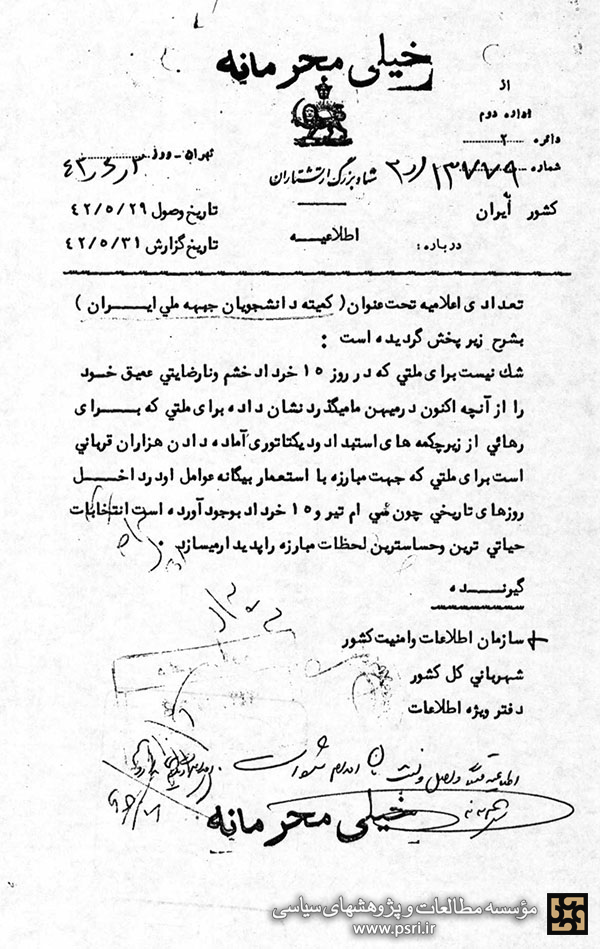 خیلی محرمانه
از
اداره دوم
دائره ۲
شماره
تهران - روز
شاه بزرگ ارتشتاران
کشور ایران
تاریخ وصول ۴۲/۵/۲۹
در باره :
اطلاعیه
تاریخ گزارش ۴۲/۵/۳۱
تعدادی اعلامیه تحت عنوان ( کمیته دانشجویان جبهه ملي ایران )
بشرح زیر پخش گردیده است :
شك نیست برای ملتي که در روز ۱۵ خرداد خشم ونارضایتي عمیق خود
را از آنچه اکنون در میهن مامیگذرد نشان داده برای ملتي که برای
رهائي از زیر چکمه های استبداد ودیکتاتوری آماده دادن هزاران قرباني
است برای ملتي که جهت مبارزه با استعمار بیگانه عوامل او در داخل
روزهای تاریخي چون سي ام تیر و ۱۵ خرداد بوجود آورده است انتخابات
حیاتي ترین وحساسترین لحظات مبارزه را پدید ارمیسازد .
گیرنده
سازمان اطلاعات وامنیت کشور
شهرباني کل کشور
دفتر ویژه اطلاعات
خیلی محرمانه
مؤسسه مطالعات و پژوهشهای سیاسی
www.psri.ir